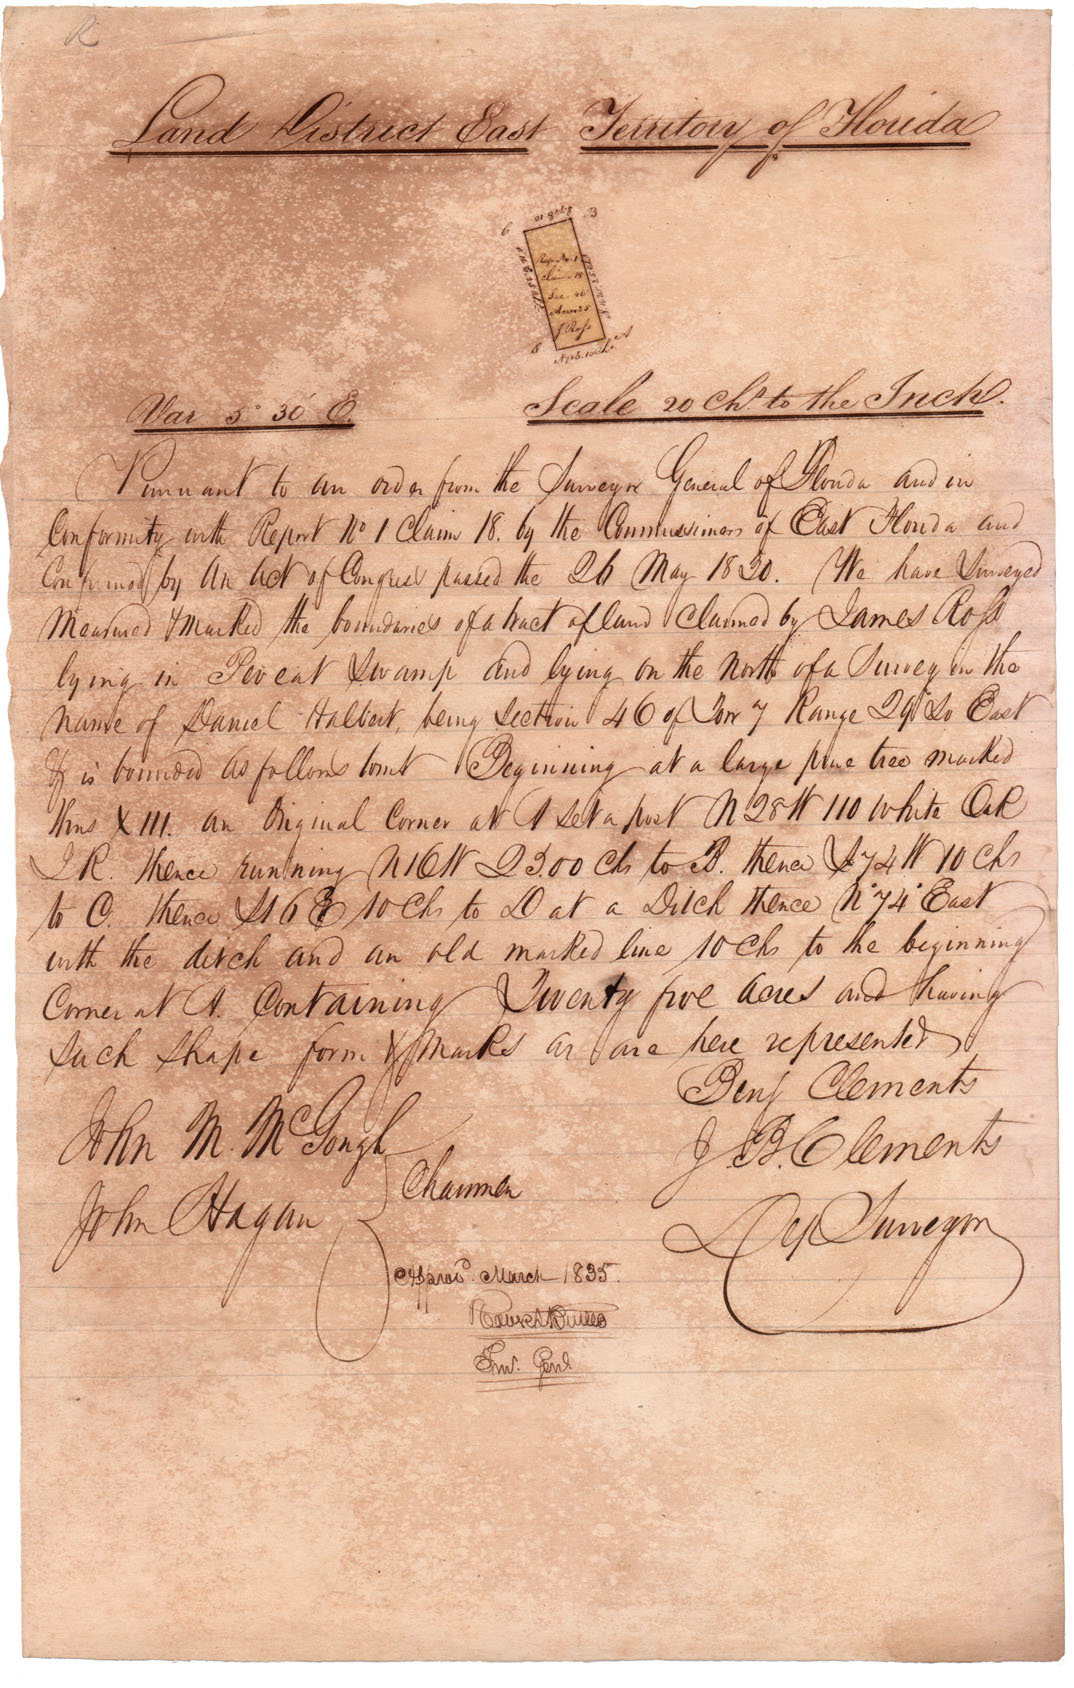 R
Land District East Territory of Florida
B
Rep. No. 1
Claim 18
Sec. 46
Acres 25
J. Ross
A
Var 5° 30' E.
Scale 20 Chs. to the Inch.
Pursuant to an order from the Surveyor General of Florida and in
Conformity with Report No 1 Claim 18. by the Commissioners of East Florida and
Confirmed by An Act of Congress passed the 26 May 1830. We have Surveyed
Measured & Marked the boundaries of a tract of land claimed by James Ross
lying in Swamp and lying on the North of a Survey in the
name of Daniel Halbert, being Section 46 of Tow 7 Range 29 So East
& is bounded as follows towit Beginning at a large pine tree marked
thus X III. an Original Corner at A set a post N 28 W 110 White Oak
J R. thence running N 16 W 25.00 Chs to B. thence S 74 W 10 Chs
to C. thence S 16 E 10 Chs to D at a Ditch thence N° 74° East
with the ditch and an old marked line 10 Chs to the beginning
Corner at A. Containing Twenty five acres and having
such shape form & Marks as are here represented
Benj Clements
J. B. Clements
Dep Surveyor
John M. McGough
John Hagan
Chainmen
Approvd. March 1835.
Robert Butler
Sur. Genl.